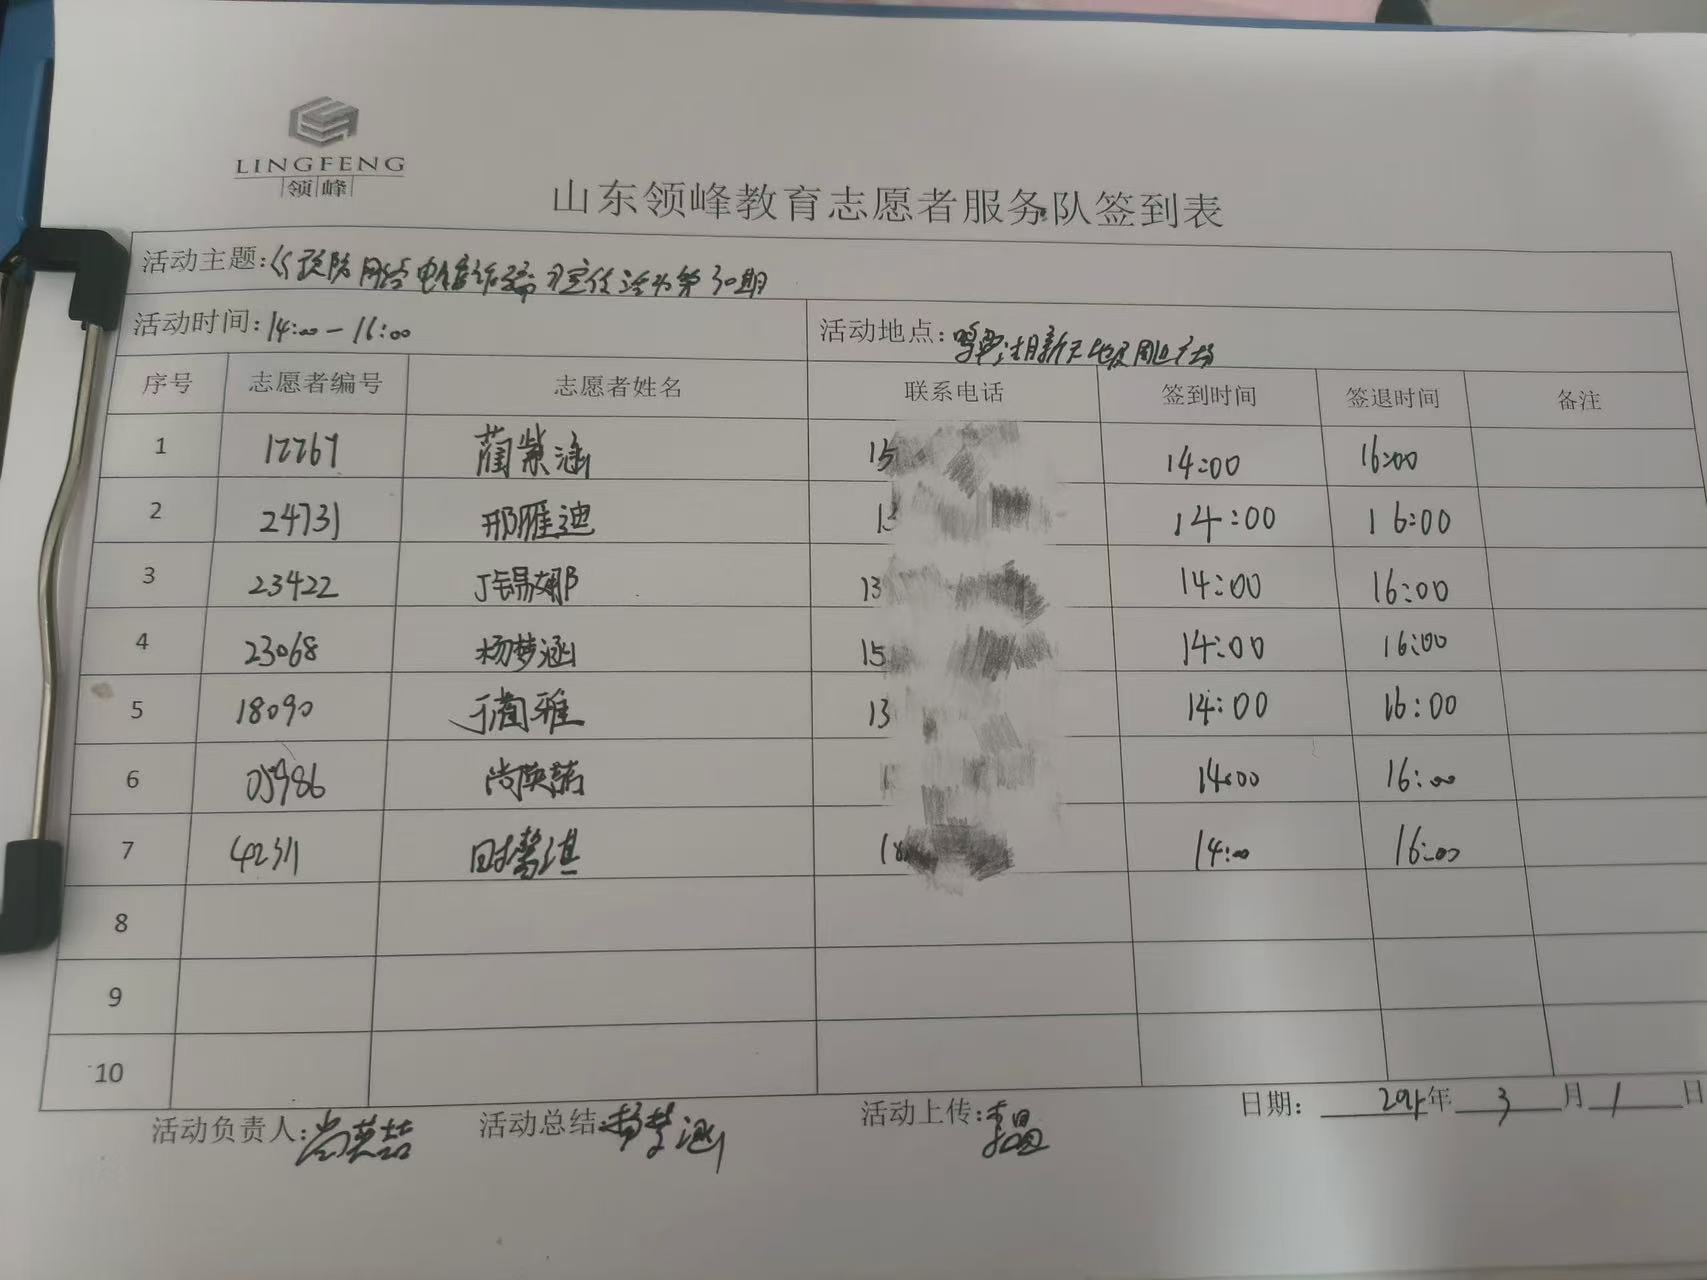 LINGFENG
领峰
山东领峰教育志愿者服务队签到表
活动主题:《预防网络电信诈骗》宣传活动第30期
活动时间:14:00-16:00 活动地点:新天地及周边广场
序号 志愿者编号 志愿者姓名 联系电话 签到时间 签退时间 备注
1 17767 蔺紫涵 15 14:00 16:00
2 24731 邢雁迪 13 14:00 16:00
3 23422 丁锡娜 13 14:00 16:00
4 23068 杨梦涵 15 14:00 16:00
5 18090 于蔺雅 13 14:00 16:00
6 05986 尚 14:00 16:00
7 42311 时馨淇 18 14:00 16:00
8
9
10
活动负责人:尚英喆 活动总结:杨梦涵 活动上传: 日期: 年 3 月 1 日